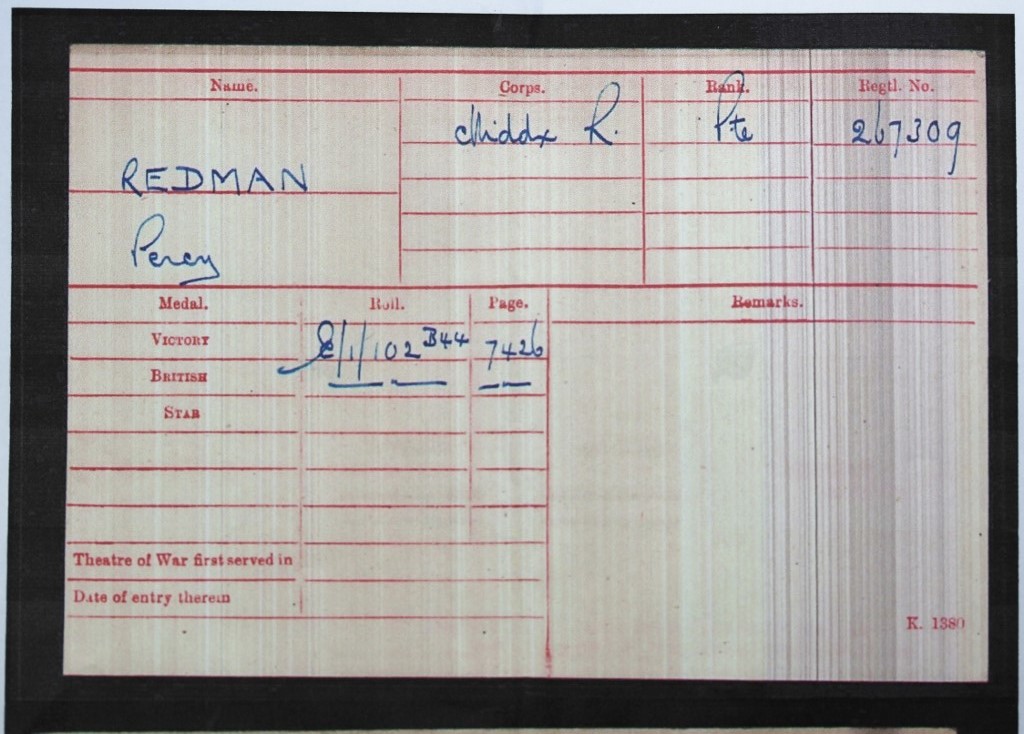 Name. Corps. Rank. Regtl. No.
Middx R. Pte 267309
REDMAN
Percy
Medal. Roll. Page. Remarks.
VICTORY E/1/102 B44 7426
BRITISH
STAR
Theatre of War first served in
Date of entry therein
K. 1380